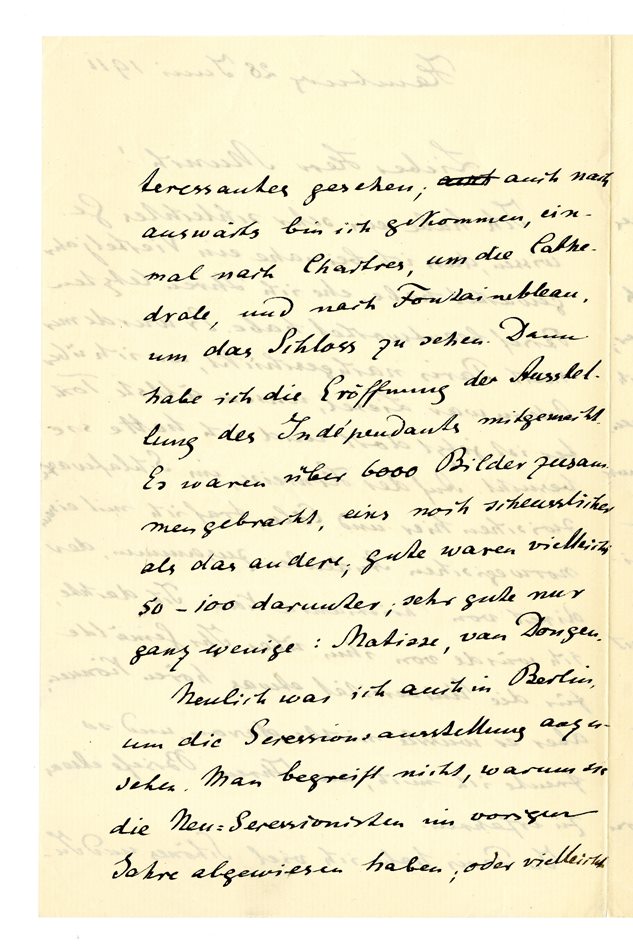 teressantes gesehen; auch nach
auswärts bin ich gekommen, ein-
mal nach Chartres, um die Cathe-
drale, und nach Fontainebleau,
um das Schloss zu sehen. Dann
habe ich die Eröffnung der Ausstel-
lung des Indépendants mitgemacht.
Es waren über 6000 Bilder zusam
mengebracht, eins noch scheusslicher
als das andere; gute waren vielleicht
50 - 100 darunter, sehr gute nur
ganz wenige: Matisse, van Dongen.
Neulich war ich auch in Berlin,
um die Secessionsausstellung anzu-
sehen. Man begreift nicht, warum sie
die Neu=Secessionisten im vorigen
Jahre abgewiesen haben, oder vielleicht